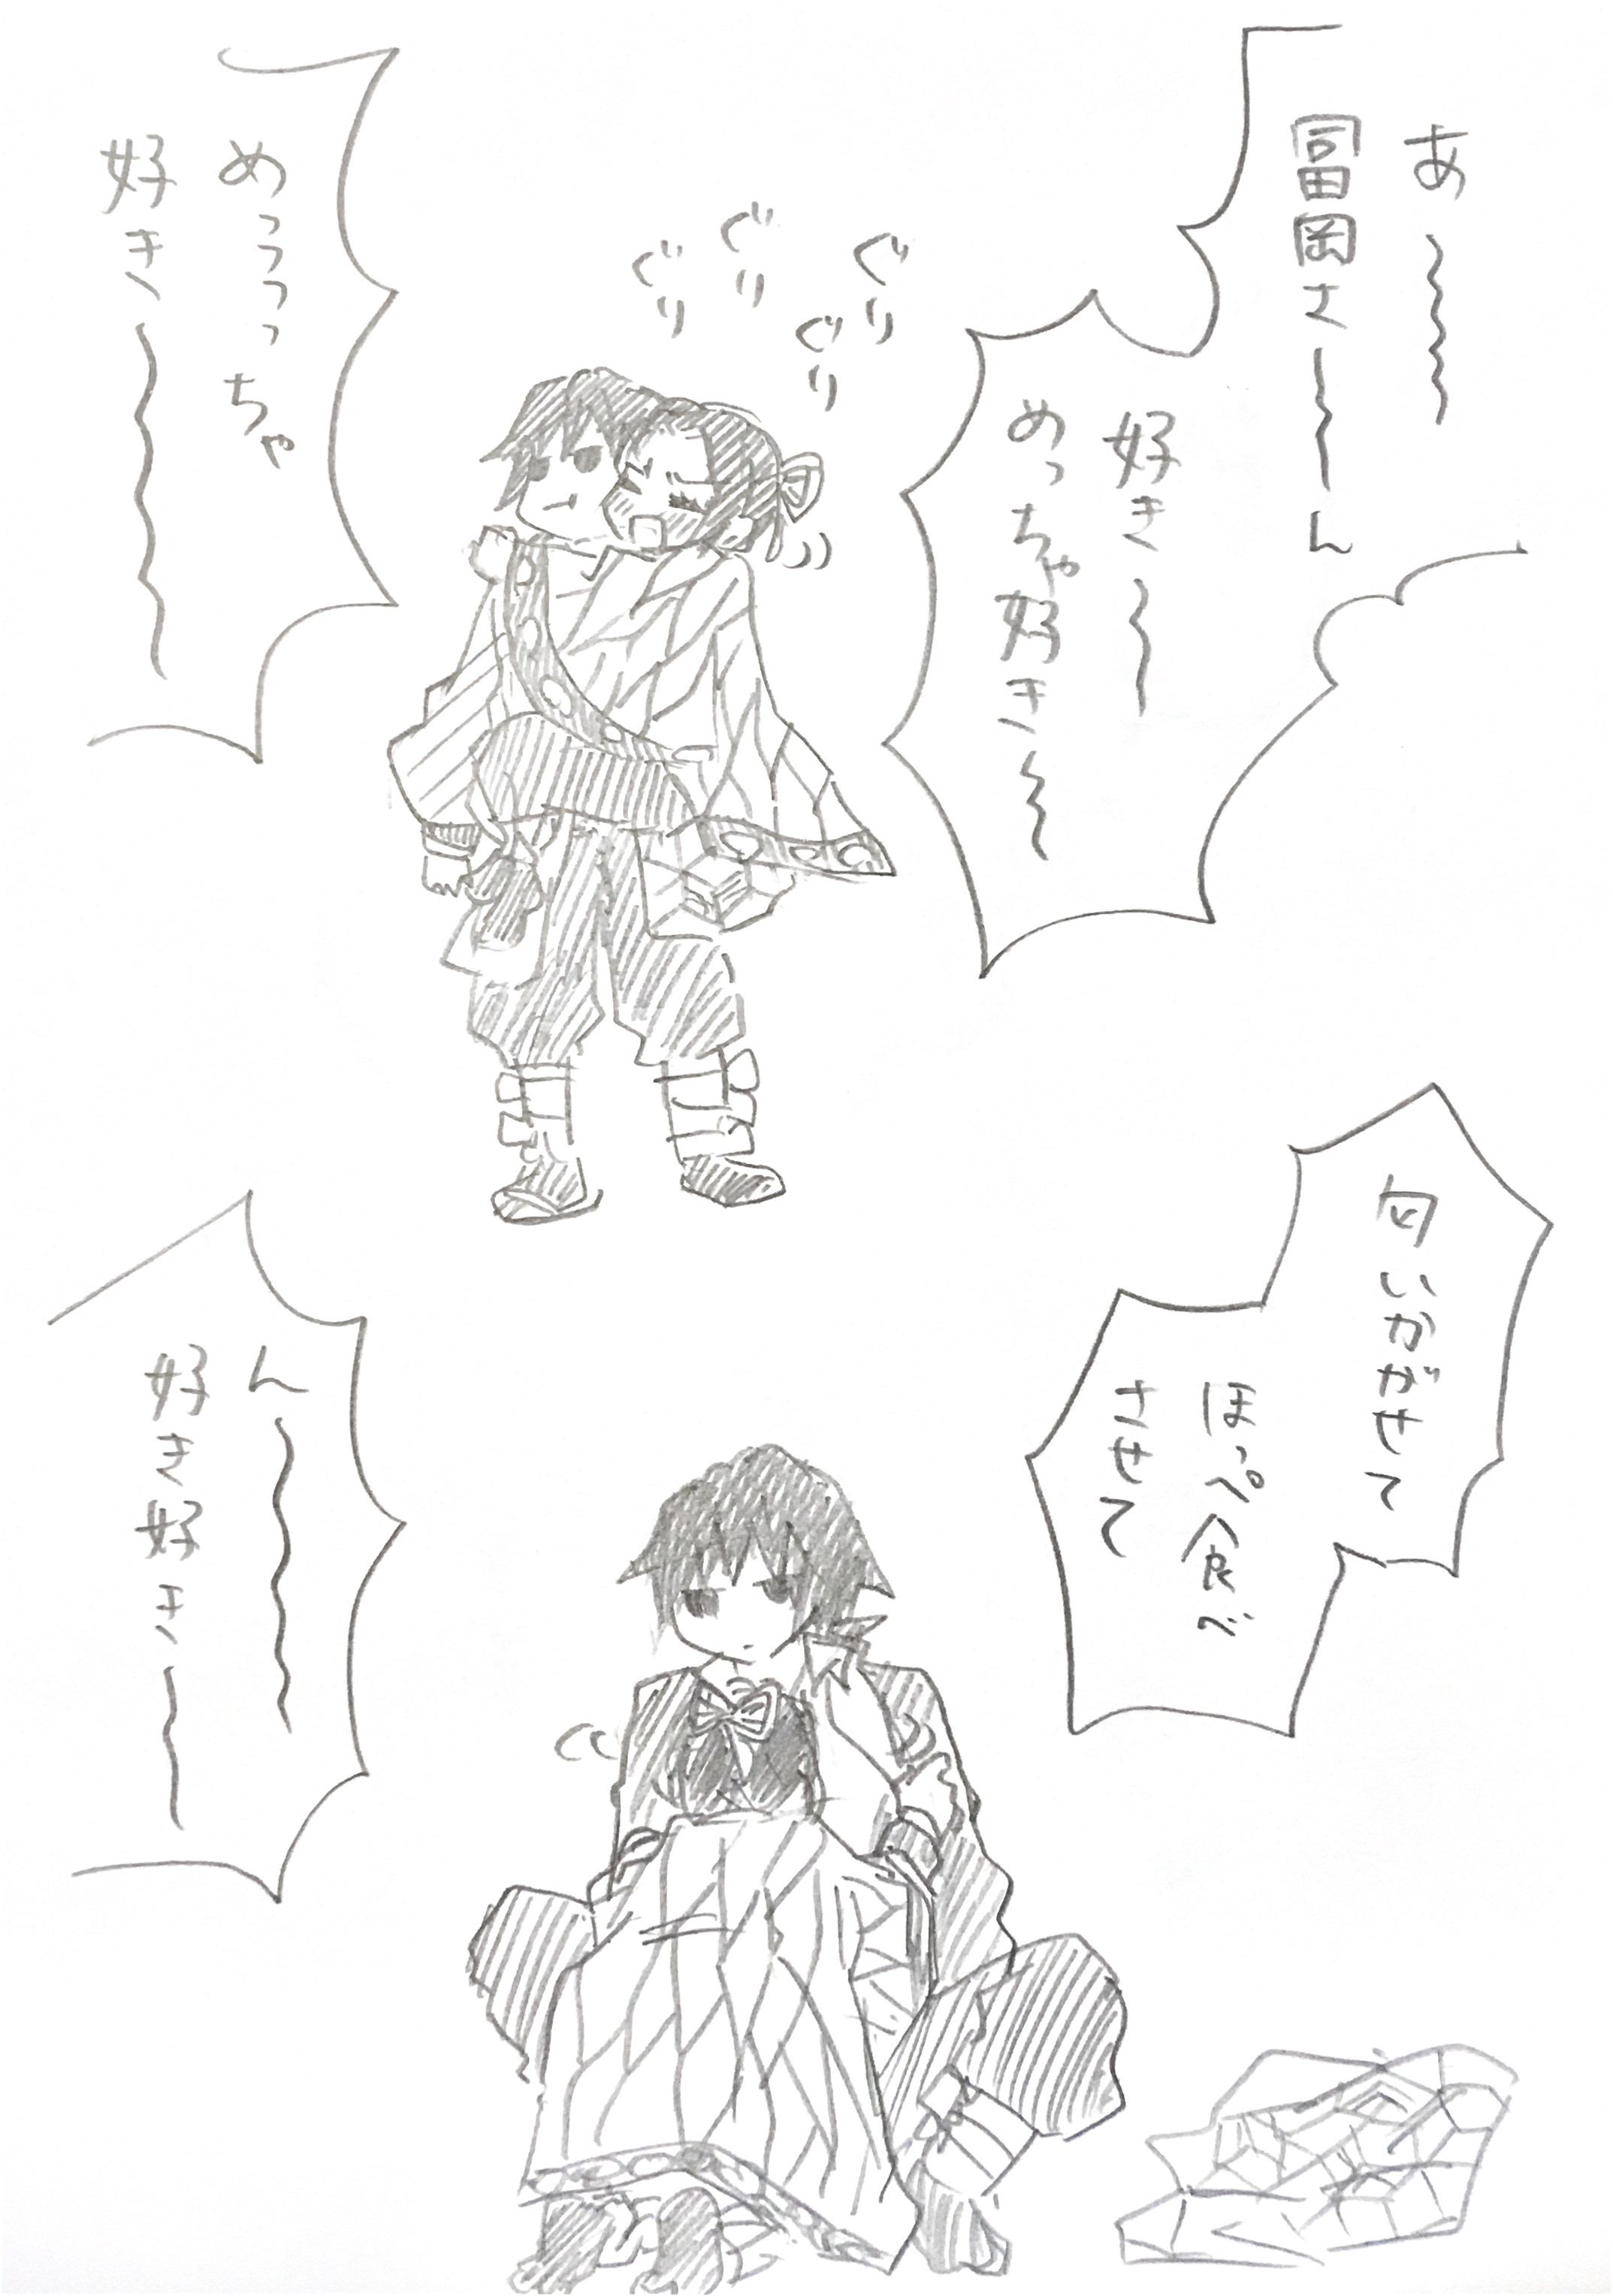 あ〜〜〜
冨岡さ〜〜ん
好き〜〜
めっちゃ好き〜〜
ぐり
ぐり
ぐり
ぐり
めっっっっちゃ
好き〜〜〜〜
匂いかがせて
ほっぺ食べ
させて
ん〜〜〜〜
好き好き〜〜